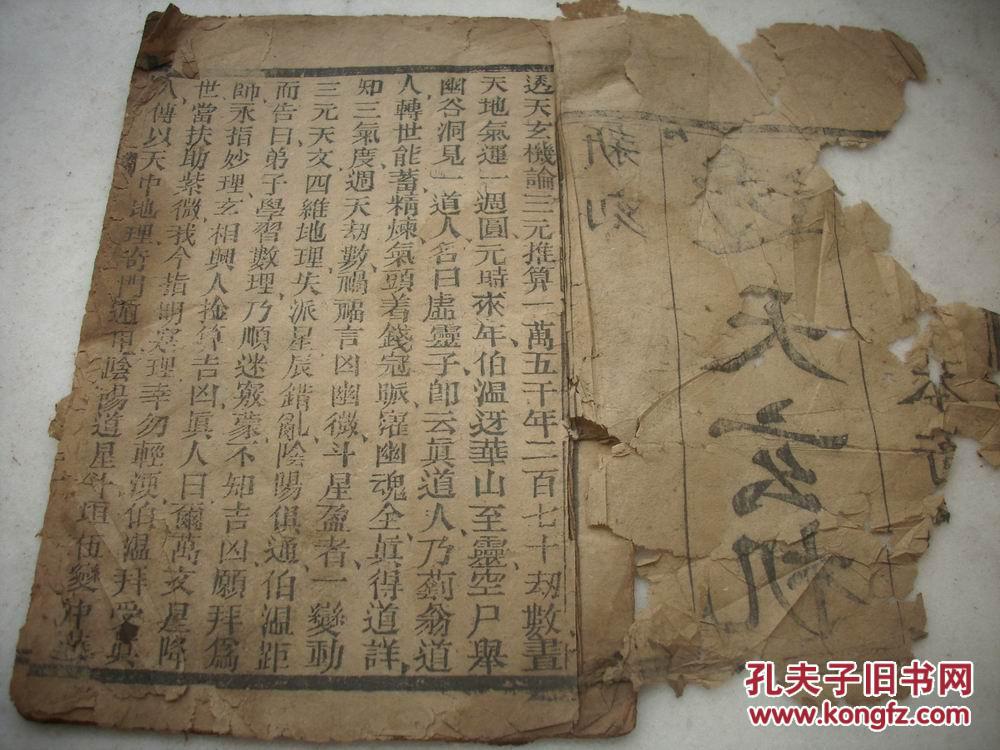 本
天玄机
新刻
透天玄機論三元推算一萬五千年二百七十刼數晝
天地氣運一週圓元時來年伯溫迓華山至靈空尸舉
幽谷洞見一道人名曰虛靈子卽云眞道人乃薊翁道
人轉世能蓄精煉氣頭着錢冠脈濯幽魂全眞得道詳
知三氣度週天刼數禍福言凶幽微斗星盈者一變動
三元天文四維地理失派星辰錯亂陰陽俱通伯溫距
而告曰弟子學習數理乃順迷竅蒙不知吉凶願拜爲
師永指妙理玄相興人推算吉凶眞人曰爾萬文星降
世當扶助紫微我今指明冥理幸勿輕洩伯溫拜受眞
人傳以天中地理奇門遁甲陰陽道星斗垣伍變冲
孔夫子旧书网
www.kongfz.com